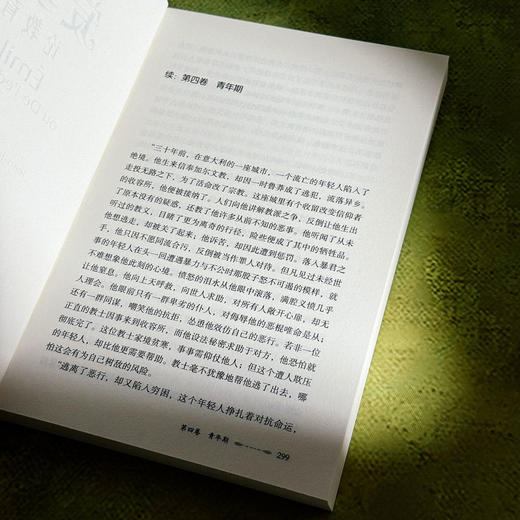 论教育
Emil
ou De l'éd
续:第四卷 青年期
“三十年前,在意大利的一座城市,一个流亡的年轻人陷入了
绝境。他生来信奉加尔文教,却因一时鲁莽成了逃犯,流落异乡。
走投无路之下,为了活命改了宗教。这座城里有个收留改变信仰者
的收容所,他便被接纳了。人们向他讲解教派之争,反倒让他生出
了原本没有的疑惑,还教了他许多从前不知的恶事。他听闻了从未
听过的教义,目睹了更为离奇的行径,险些便成了其中的牺牲品。
他想逃走,却被关了起来;他诉苦,却因此遭到惩罚。落入暴君之
手,他只因不愿同流合污,反倒被当作罪人对待。但凡见过未经世
事的年轻人在头一回遭遇暴力与不公时那股子怒不可遏的模样,就
不难想象他此刻的心境。愤怒的泪水从他眼中滚落,满腔义愤几乎
让他窒息。他向上天呼救,向世人求助,对所有人敞开心扉,却无
人理会。他眼前只有一群卑劣的仆人,对侮辱他的恶棍唯命是从;
还有一群同谋,嘲笑他的抗拒,怂恿他效仿自己的恶行。若非一位
正直的教士因事来到收容所,而他设法秘密求助于对方,他恐怕就
彻底完了。这位教士家境贫寒,事事需仰仗他人;但这个遭人欺压
的年轻人,却比他更需要帮助。教士毫不犹豫地帮他逃了出去,哪
怕这会有为自己树敌的风险。
“逃离了恶行,却又陷入穷困,这个年轻人挣扎着对抗命运,
第四卷 青年期
299